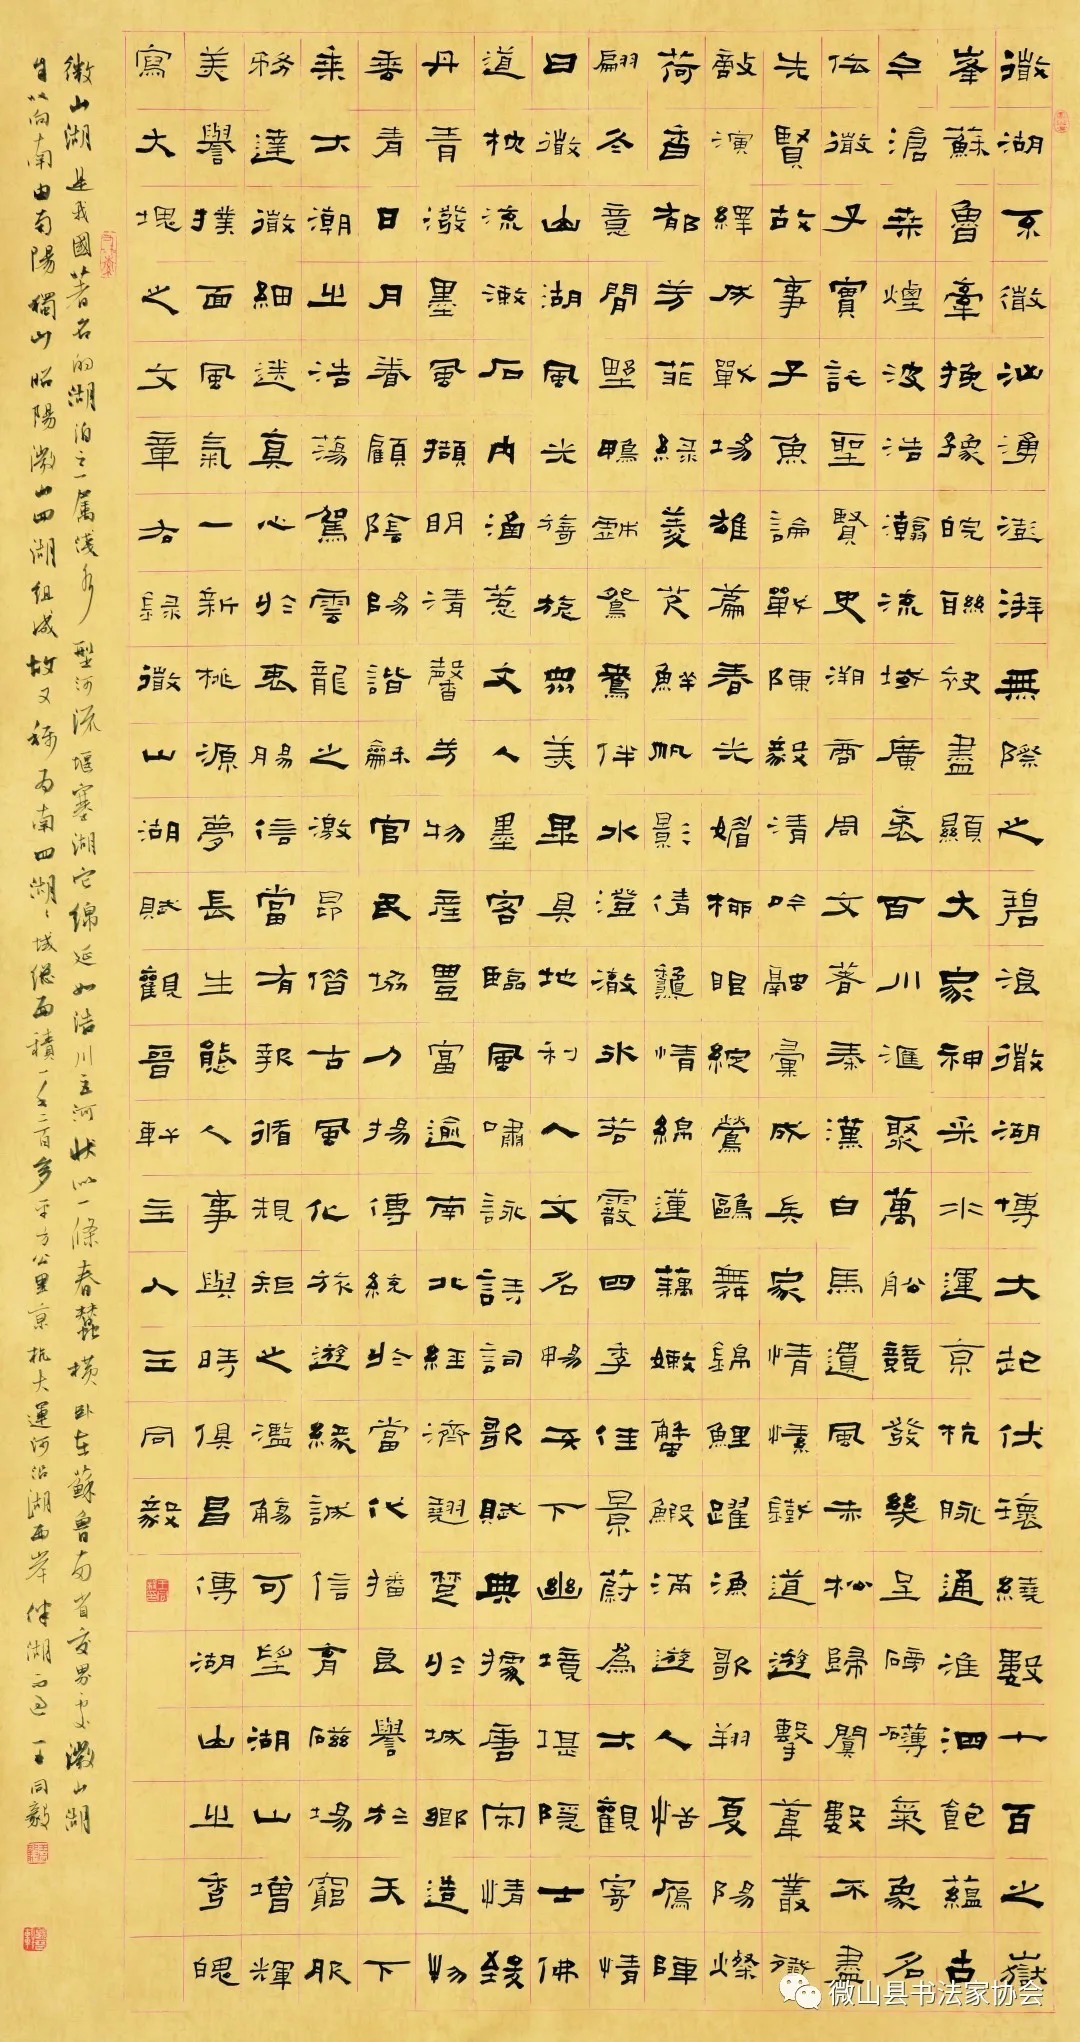 微湖系微山湧澎湃無際之碧浪微湖博大起伏環繞數十百之嶽
峯蘇魯牽挽豫皖聯袂盡顯大家神采水運京杭脉通淮泗飽蘊古
今滄桑煌波浩瀚流域廣袤百川滙聚萬船競發幾呈磅礴氣象名
伝微子實託聖賢史溯商周文著秦漢白馬遺風赤松歸闃數不盡
先賢故事子魚論戰陳毅清吟融彙成兵家情愫鐵道遊擊葦叢殲
敵演繹成戰場雄篇春光媚柳眼綻鶯鷗舞錦鯉躍漁歌翔夏陽燦
荷香郁芳菲綠菱芡鮮帆影倩情綿蓮藕嫩蟹鰕滿遊人恬鴈陣
翩冬意閒野鴨鋪鴛鴦伴水澄澈冰若霰四季佳景蔚為大觀寄情
曰微山湖風光旖旎眾美畢具地利人文名暢天下幽境堪隱士佛
道枕流漱石內涵惹文人墨客臨風嘯詠詩詞歌賦典據唐宋情綫
丹青潑墨風擷明清馨芳物產豐富逾南北經濟翹楚於城鄉造物
垂青日月眷顧陰陽諧龢官民協力揚傳統於當代播良譽於天下
乘大潮之浩蕩駕雲龍之激昂偕古風化旅遊緣誠信育磁場窮服
務達微細送真心於衷腸信當有報循規矩之濫觴可望湖山增輝
美譽撲面風氣一新桃源夢長生態人事與時俱昌傳湖山之香魄
寫大塊之文章右錄微山湖賦觀晉軒主人王同毅
微山湖是我國著名的湖泊之一屬淺水型河流堰塞湖它綿延如川河狀似一條春蠶橫臥在蘇魯兩省交界處微山湖
自北向南由南陽獨山昭陽微山四湖組成故又稱為南四湖湖域總面積一千二百多平方公里京杭大運河沿湖西岸伴湖而過王同毅
微山县书法家协会